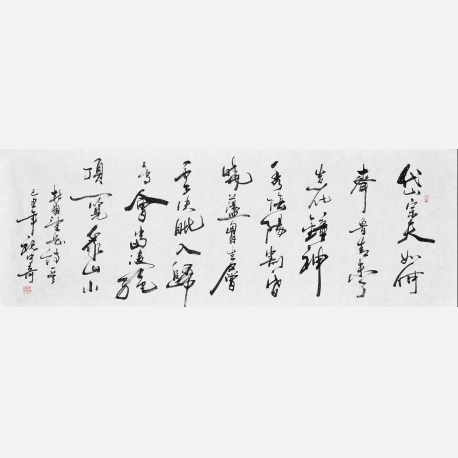 岱宗夫如何
齊魯青未了
造化鍾神
秀陰陽割昏
曉蕩胷生層
雲決眦入歸
鳥會當凌絕
頂一覽眾山小
杜甫望岳詩
己丑年